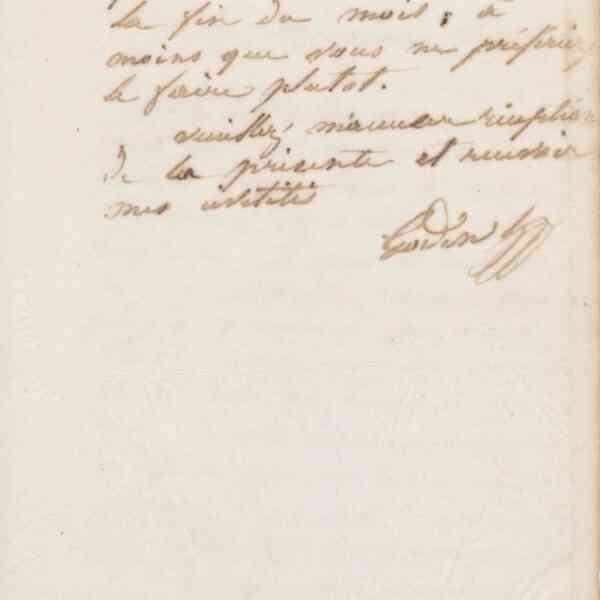 la fin du mois, à
moins que vous ne préfériez
le faire plutot.
veuillez m'accuser réception
de la présente et recevoir
mes civilités
Godin